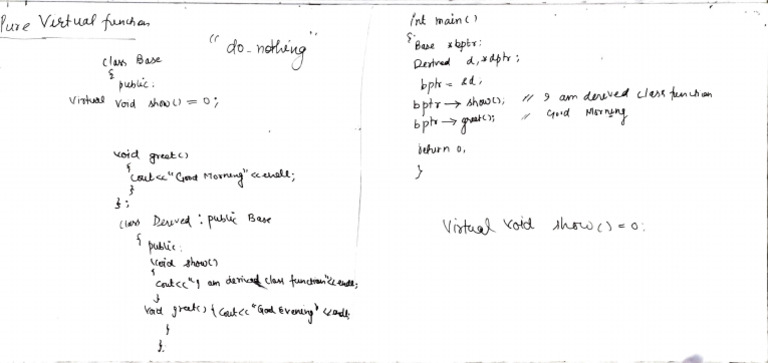 Pure Virtual function
"do-nothing"
class Base
{
public:
Virtual void show() = 0;
void greet()
{
cout<<"Good Morning"<<endl;
}
};
class Derived : public Base
{
public:
void show()
{
cout<<"I am derived class function"<<endl;
}
void greet() { cout<<"God Evening"<<endl;
}
};
int main()
{
Base *bptr;
Derived d,*dptr;
bptr = &d;
bptr → show(); // I am derived class function
bptr → greet(); // Good Morning
return 0;
}
Virtual void show() = 0;